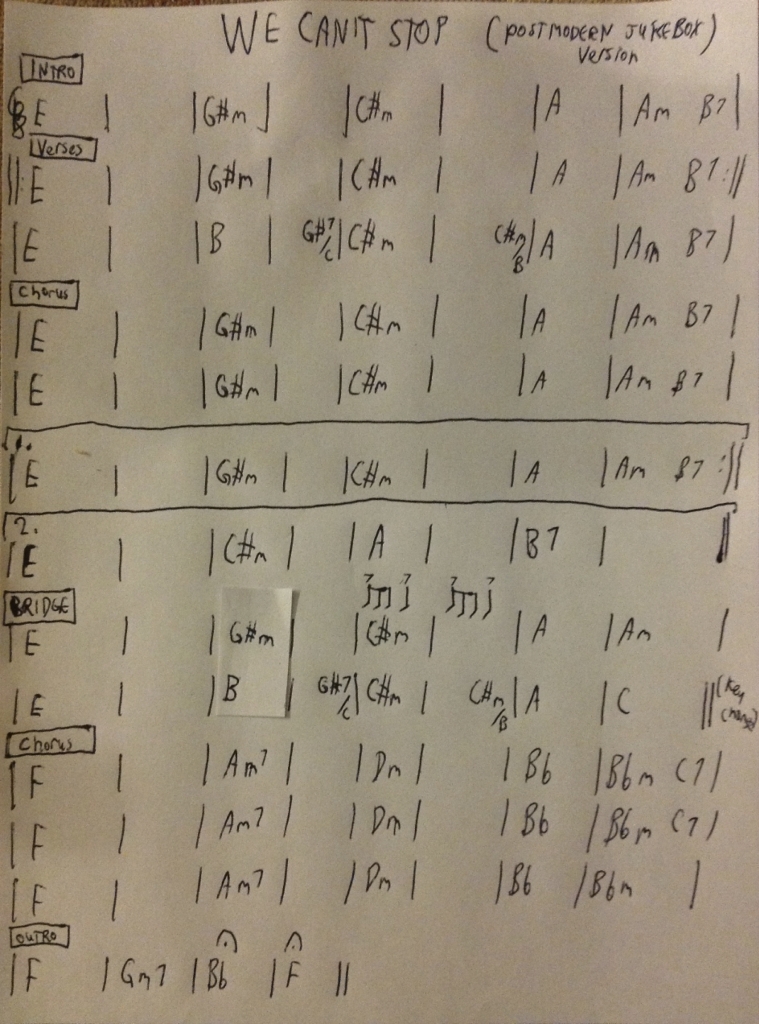 WE CAN'T STOP (POSTMODERN JUKEBOX)
Version
INTRO
E | | G#m | | C#m | | A | Am B7 |
Verses
||: E | | G#m | | C#m | | A | Am B7 :||
| E | | B | G#7/C | C#m | C#m/B | A | Am B7 |
Chorus
| E | | G#m | | C#m | | A | Am B7 |
| E | | G#m | | C#m | | A | Am B7 |
1.
| E | | G#m | | C#m | | A | Am B7 :||
2.
| E | | C#m | | A | | B7 | ||
BRIDGE
| E | | G#m | C#m | | A | Am |
| E | | B | G#7/C | C#m | C#m/B | A | C || (Key change)
Chorus
| F | | Am7 | | Dm | | Bb | Bbm C7 |
| F | | Am7 | | Dm | | Bb | Bbm C7 |
| F | | Am7 | | Dm | | Bb | Bbm |
OUTRO
| F | Gm7 | Bb | F ||